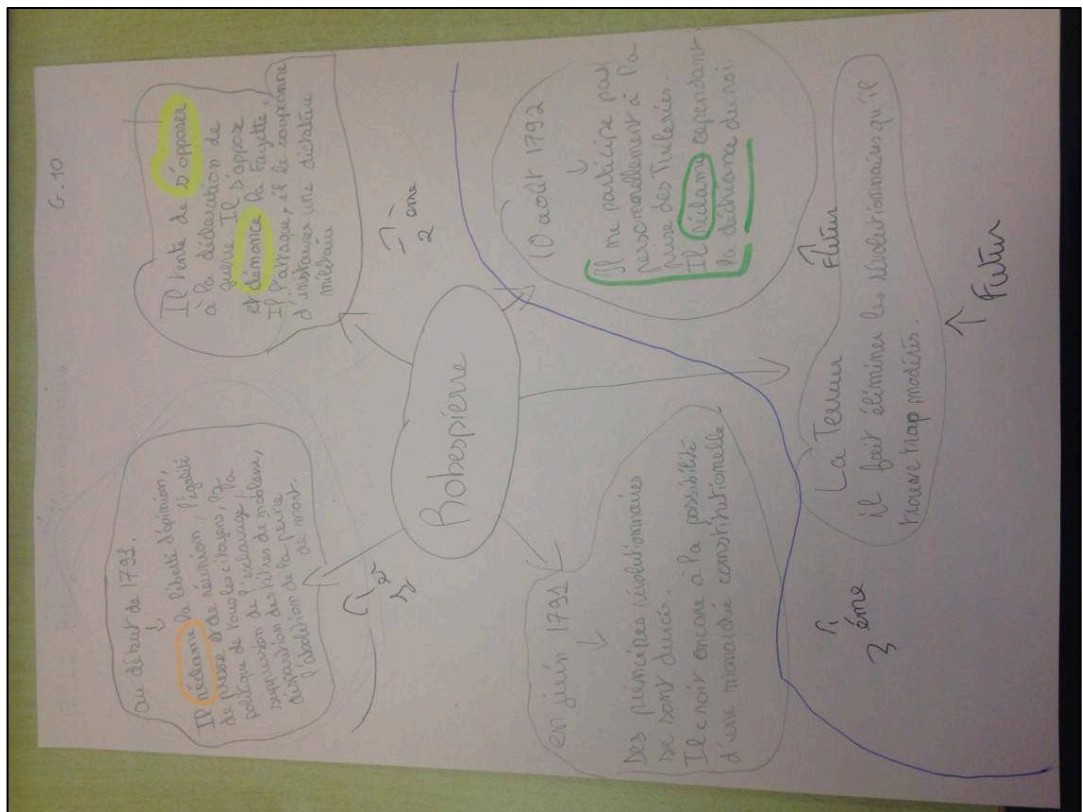 G.10
au début de 1791.
↓
Il réclame la liberté d'opinion,
de presse et de réunion, l'égalité
politique de tous les citoyens, la
suppression de l'esclavage, la
disparition des titres de noblesse,
l'abolition de la peine
de mort.
1er
Il tente de s'opposer
à la déclaration de
guerre. Il s'oppose
et dénonce la Fayette,
Il l'attaque, il le soupçonne
d'instaurer une dictature
militaire
↑
2ème
Robespierre
en juin 1791
↓
Des principes révolutionnaires
se sont durcis.
Il croit encore à la possibilité
d'une monarchie constitutionnelle.
10 août 1792
↓
Il ne participe pas
personnellement à la
prise des Tuileries.
Il réclame cependant
la déchéance du roi.
↑
3ème
La Terreur
Futur
il fait éliminer les révolutionnaires qu'il
trouve trop modérés.
↑
Futur